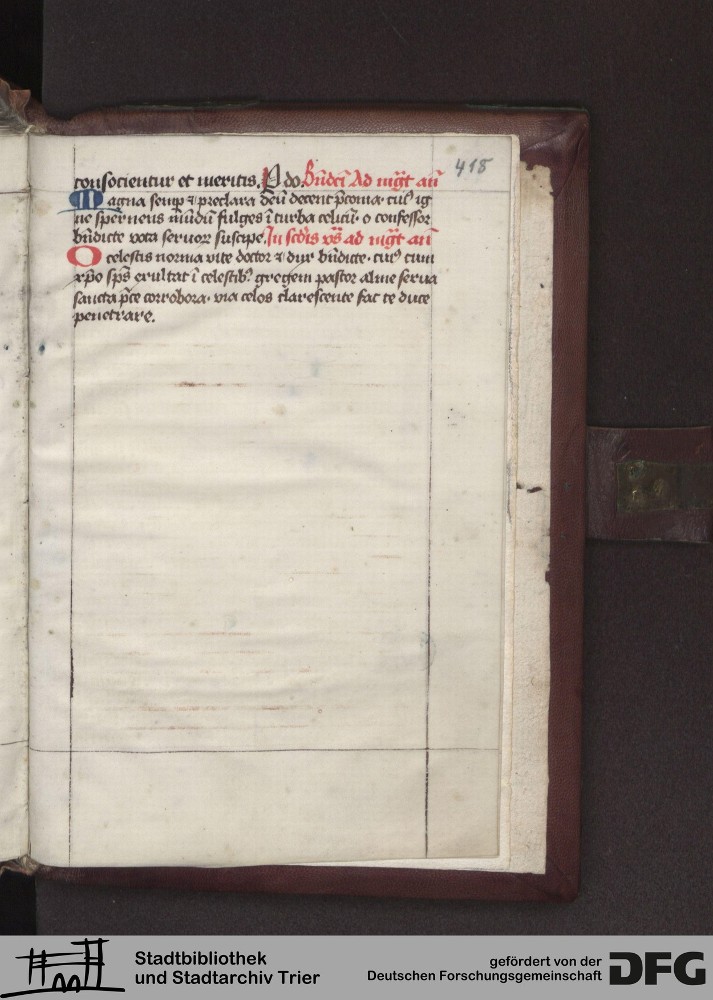 418
consocientur et meritis. P do. Bn̄dcī Ad mg̅t an̄
Magna semp ⁊ preclara deū decent p̄conia· cuiꝰ ig
ne sperneus mūdū fulges ī turba celicū· o confessor
bn̄dicte vota seruoꝝ suscipe. In scd̄is vs̄ ad mg̅t an̄
O celestis norma vite doctor ⁊ dux bn̄dicte· cuiꝰ cum
xp̄o sp̄s exultat ī celestibꝫ gregem pastor alme serua
sancta p̄ce corrobora· via celos clarescente fac te duce
penetrare.
Stadtbibliothek
und Stadtarchiv Trier
gefördert von der
Deutschen Forschungsgemeinschaft
DFG